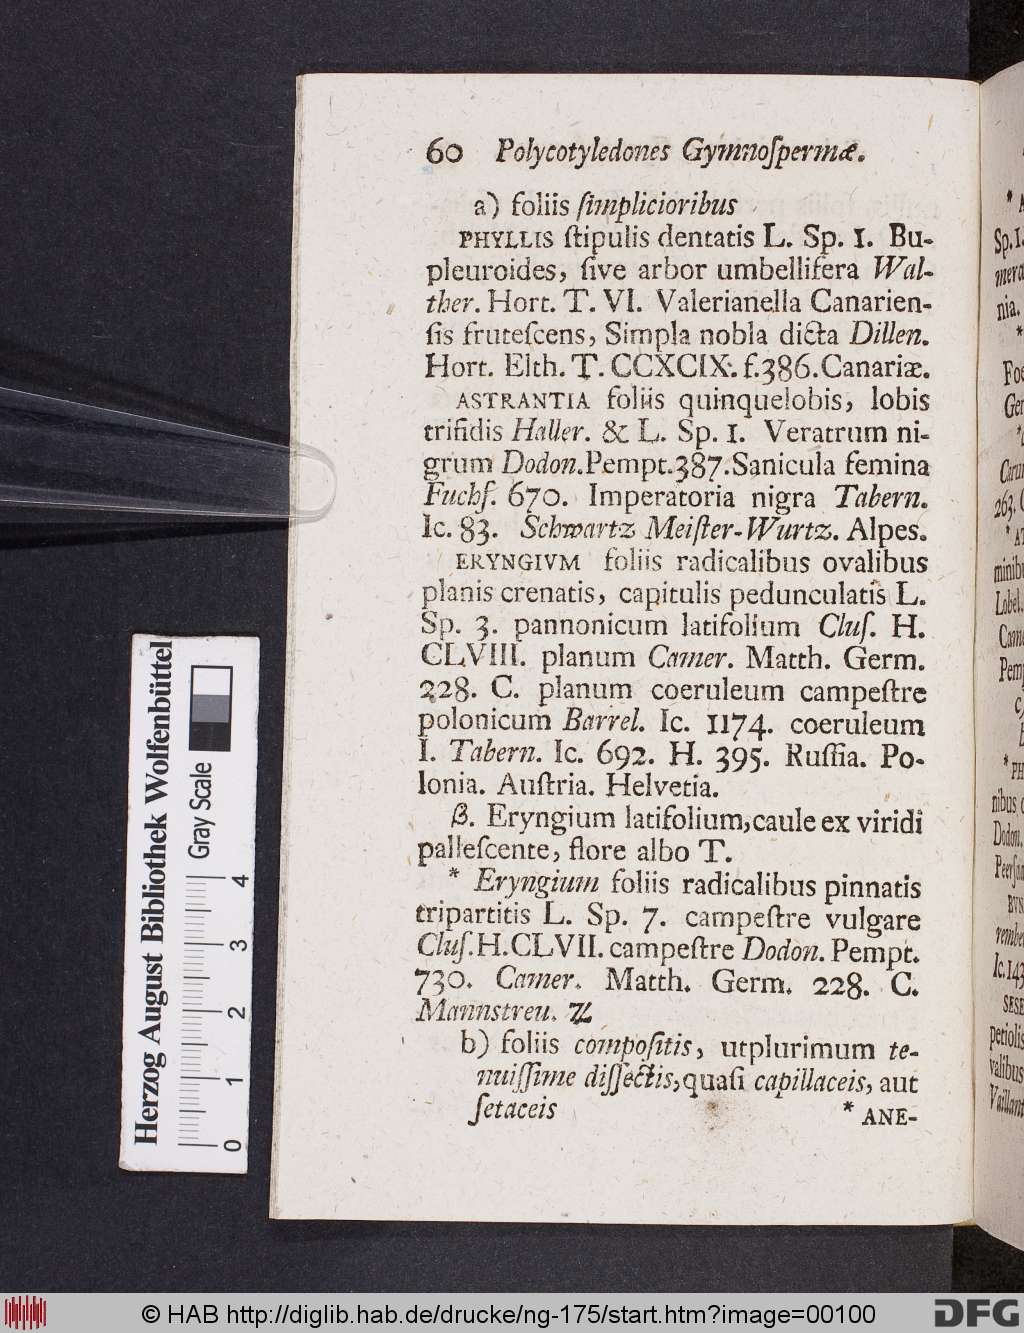 60 Polycotyledones Gymnoſpermæ.
a) foliis ſimplicioribus
PHYLLIS ſtipulis dentatis L. Sp. 1. Bu-
pleuroides, ſive arbor umbellifera Wal-
ther. Hort. T. VI. Valerianella Canarien-
ſis fruteſcens, Simpla nobla dicta Dillen.
Hort. Elth. T. CCXCIX. f.386. Canariæ.
ASTRANTIA foliis quinquelobis, lobis
trifidis Haller. & L. Sp. 1. Veratrum ni-
grum Dodon. Pempt. 387. Sanicula femina
Fuchſ. 670. Imperatoria nigra Tabern.
Ic. 83. Schwartz Meiſter-Wurtz. Alpes.
ERYNGIVM foliis radicalibus ovalibus
planis crenatis, capitulis pedunculatis L.
Sp. 3. pannonicum latifolium Cluſ. H.
CLVIII. planum Camer. Matth. Germ.
228. C. planum coeruleum campeſtre
polonicum Barrel. Ic. 1174. coeruleum
I. Tabern. Ic. 692. H. 395. Ruſſia. Po-
lonia. Auſtria. Helvetia.
β. Eryngium latifolium, caule ex viridi
palleſcente, flore albo T.
* Eryngium foliis radicalibus pinnatis
tripartitis L. Sp. 7. campeſtre vulgare
Cluſ. H. CLVII. campeſtre Dodon. Pempt.
730. Camer. Matth. Germ. 228. C.
Mannstreu. ♃
b) foliis compoſitis, utplurimum te-
nuiſſime diſſectis, quaſi capillaceis, aut
ſetaceis
* ANE-
Sp. 1.
mera
nia.
*
Foe
Ger
Carui
263. C
* AT
minibu
Lobel.
Came
Pemp
c)
* PH
nibus
Dodon.
rember
Ic. 143
SESE
petiolis
valibus
Vaillant
Herzog August Bibliothek Wolfenbüttel
Gray Scale
0 1 2 3 4
© HAB http://diglib.hab.de/drucke/ng-175/start.htm?image=00100
DFG